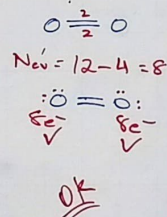 O =2=2= O
Nev' = 12 - 4 = 8
:Ö = Ö:
8e⁻ 8e⁻
✓ ✓
OK